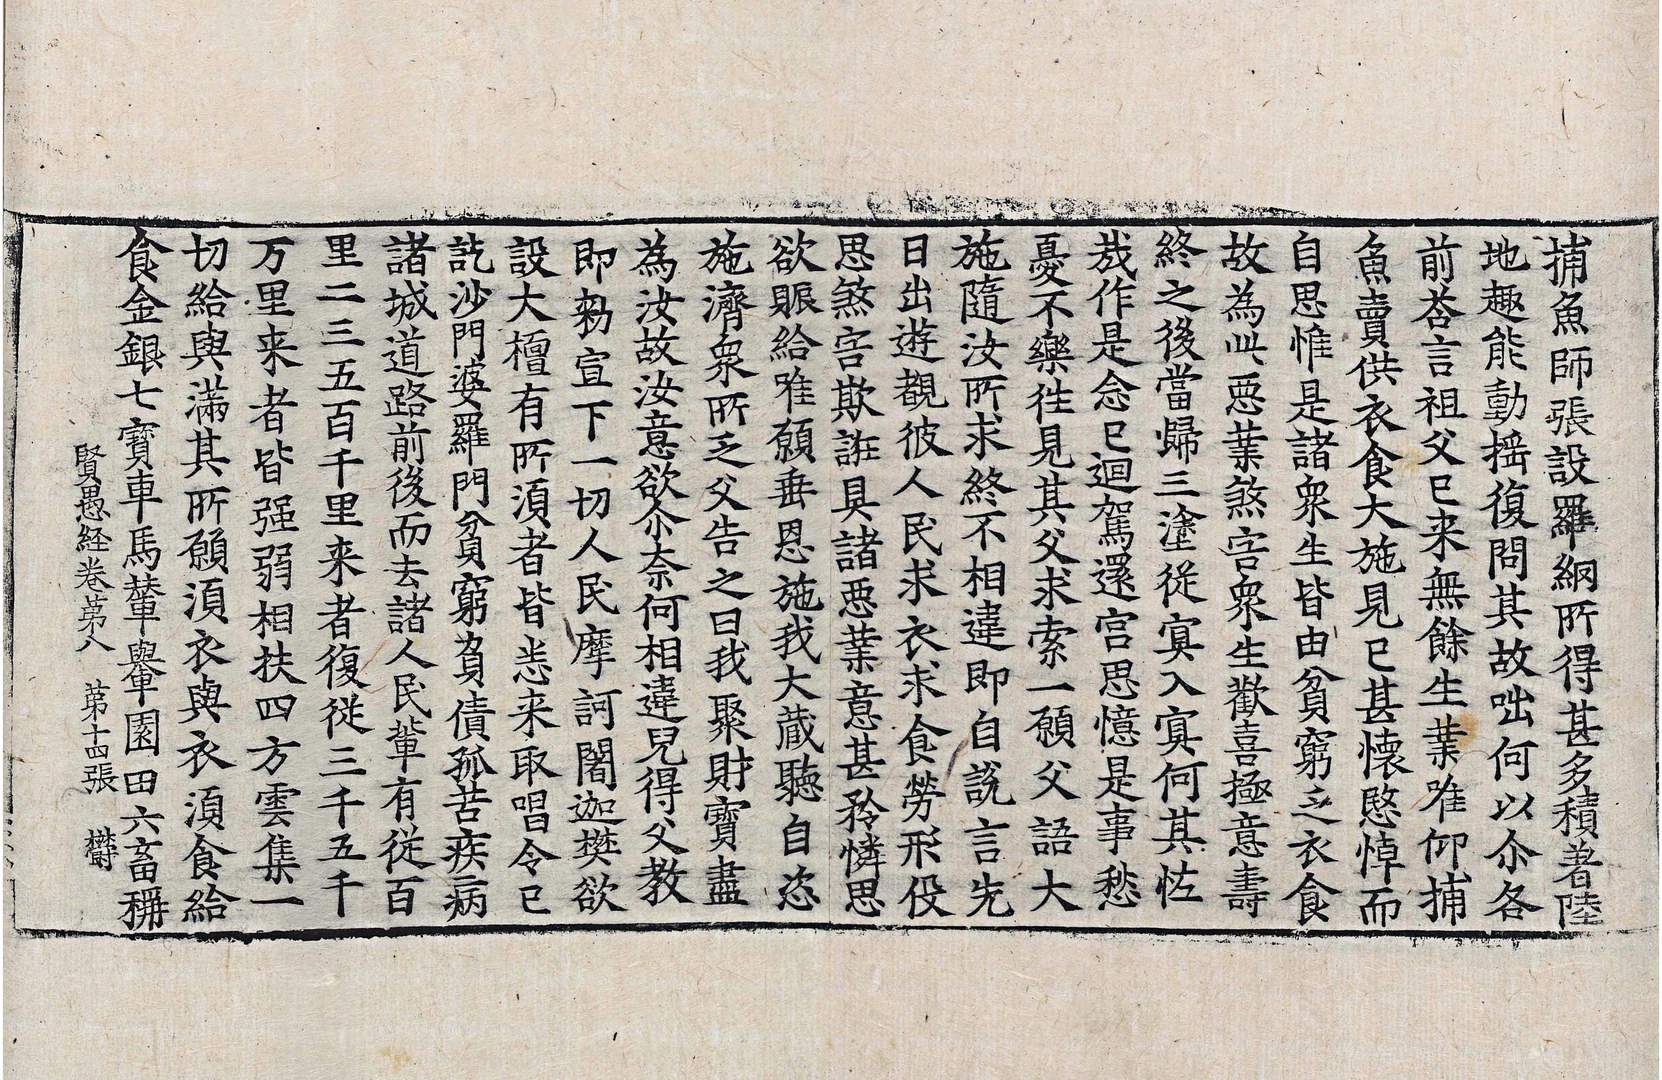 捕魚師張設羅網所得甚多積著陸
地趣能動揺復問其故咄何以尒各
前荅言祖父已来無餘生業唯仰捕
魚賣供衣食大施見已甚懐愍悼而
自思惟是諸衆生皆由貧窮乏衣食
故為此惡業煞害衆生歡喜極意壽
終之後當歸三塗従㝠入㝠何其恠
㦲作是念已迴駕還宫思憶是事愁
憂不樂往見其父求索一願父語大
施隨汝所求終不相違即自說言先
日出遊觀彼人民求衣求食勞形伇
思煞害欺誑具諸惡業意甚矜憐思
欲賑給唯願垂恩施我大蔵聽自恣
施濟衆所乏父告之曰我聚財寳盡
為汝故汝意欲尒奈何相違兒得父教
即勑宣下一切人民摩訶闍迦樊欲
設大檀有所湏者皆悉来取唱令已
訖沙門婆羅門貧窮負債孤苦疾病
諸城道路前後而去諸人民輩有従百
里二三五百千里来者復従三千五千
万里来者皆强弱相扶四方雲集一
切給與滿其所願湏衣與衣湏食給
食金銀七寳車馬輦轝園田六畜稱
賢愚経卷苐八　苐十四張　欝